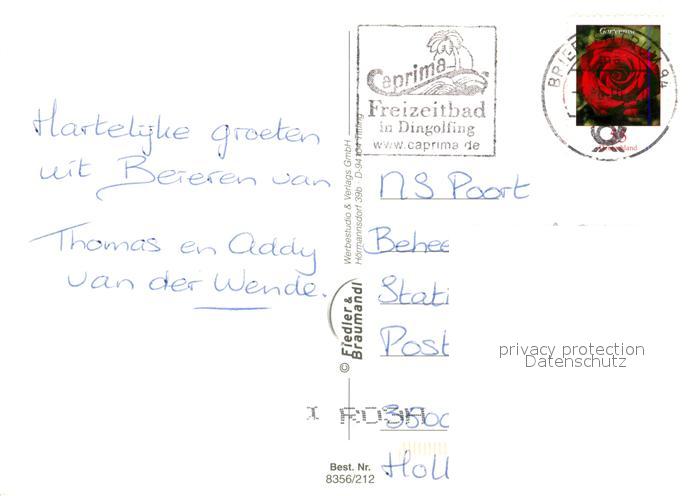 Hartelijke groeten
uit Beieren van
Thomas en Addy
van der Wende.
Caprima
Freizeitbad
in Dingolfing
www.caprima.de
Gartenrose
BRIEFZENTRUM 94
NS Poort
Behee
Stati
Post
Holl
Werbestudio & Verlags GmbH
Hörmannsdorf 39b · D-94104 Tittling
© Fiedler &
Braumandl
privacy protection
Datenschutz
Best. Nr.
8356/212